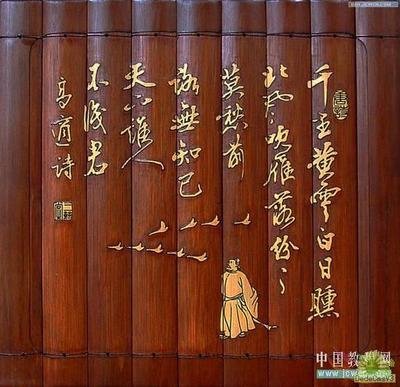 千里黄雲白日曛
北風吹雁雪紛〻
莫愁前
路無知己
天下誰人
不識君
高適詩
中国教程网
www.jcwcn.com